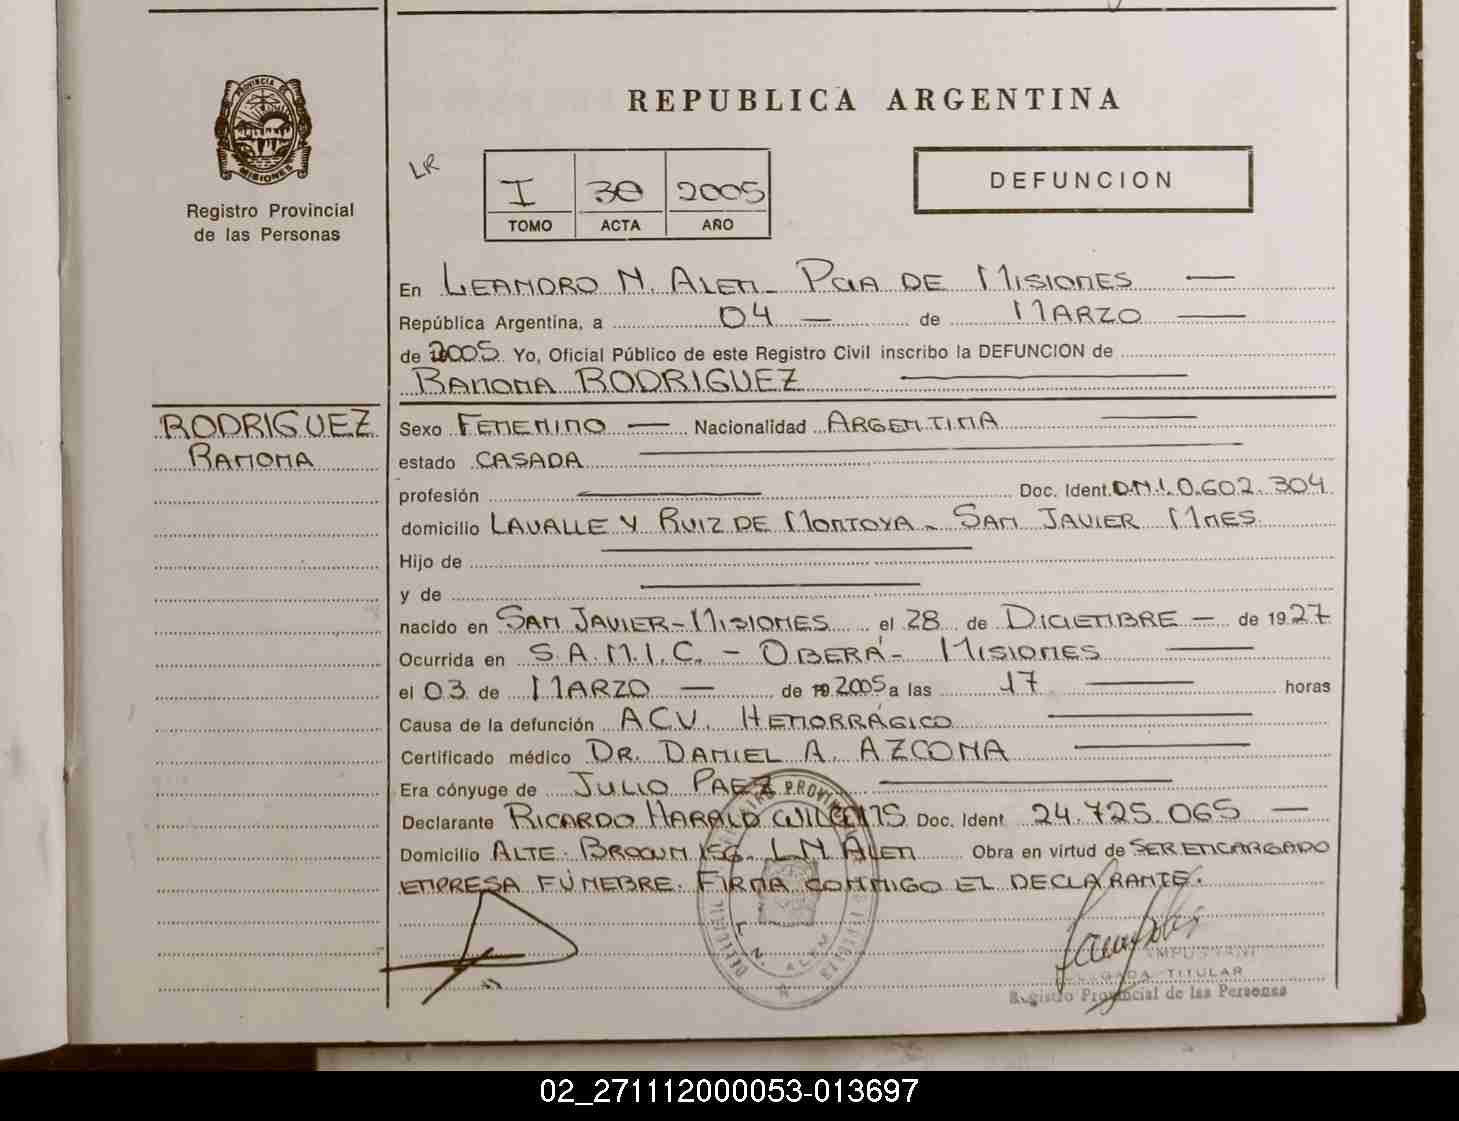 REPUBLICA ARGENTINA
PROVINCIA DE
MISIONES
Registro Provincial
de las Personas
LR
I 30 2005
TOMO ACTA AÑO
DEFUNCION
En LEANDRO N. ALEM - PCIA DE MISIONES —
República Argentina, a 04 — de MARZO —
de 2005 Yo, Oficial Público de este Registro Civil inscribo la DEFUNCION de
RAMONA RODRIGUEZ —
RODRIGUEZ
RAMONA
Sexo FEMENINO — Nacionalidad ARGENTINA —
estado CASADA —
profesión — Doc. Ident. D.N.I. 0.602.304
domicilio LAVALLE Y RUIZ DE MONTOYA - SAN JAVIER MNES.
Hijo de —
y de —
nacido en SAN JAVIER - MISIONES el 28 de DICIEMBRE — de 1927
Ocurrida en S.A.M.I.C. - OBERÁ - MISIONES —
el 03 de MARZO — de 2005 a las 17 — horas
Causa de la defunción ACV. HEMORRÁGICO —
Certificado médico DR. DANIEL A. AZCONA —
Era cónyuge de JULIO PAEZ —
Declarante RICARDO HARALD Doc. Ident 24.725.065 —
Domicilio ALTE. BROWN 156. L N ALEM Obra en virtud de SER ENCARGADO
EMPRESA FÚNEBRE. FIRMA CONMIGO EL DECLARANTE.
L. N. ALEM
DELEGADA TITULAR
Registro Provincial de las Personas
02_271112000053-013697